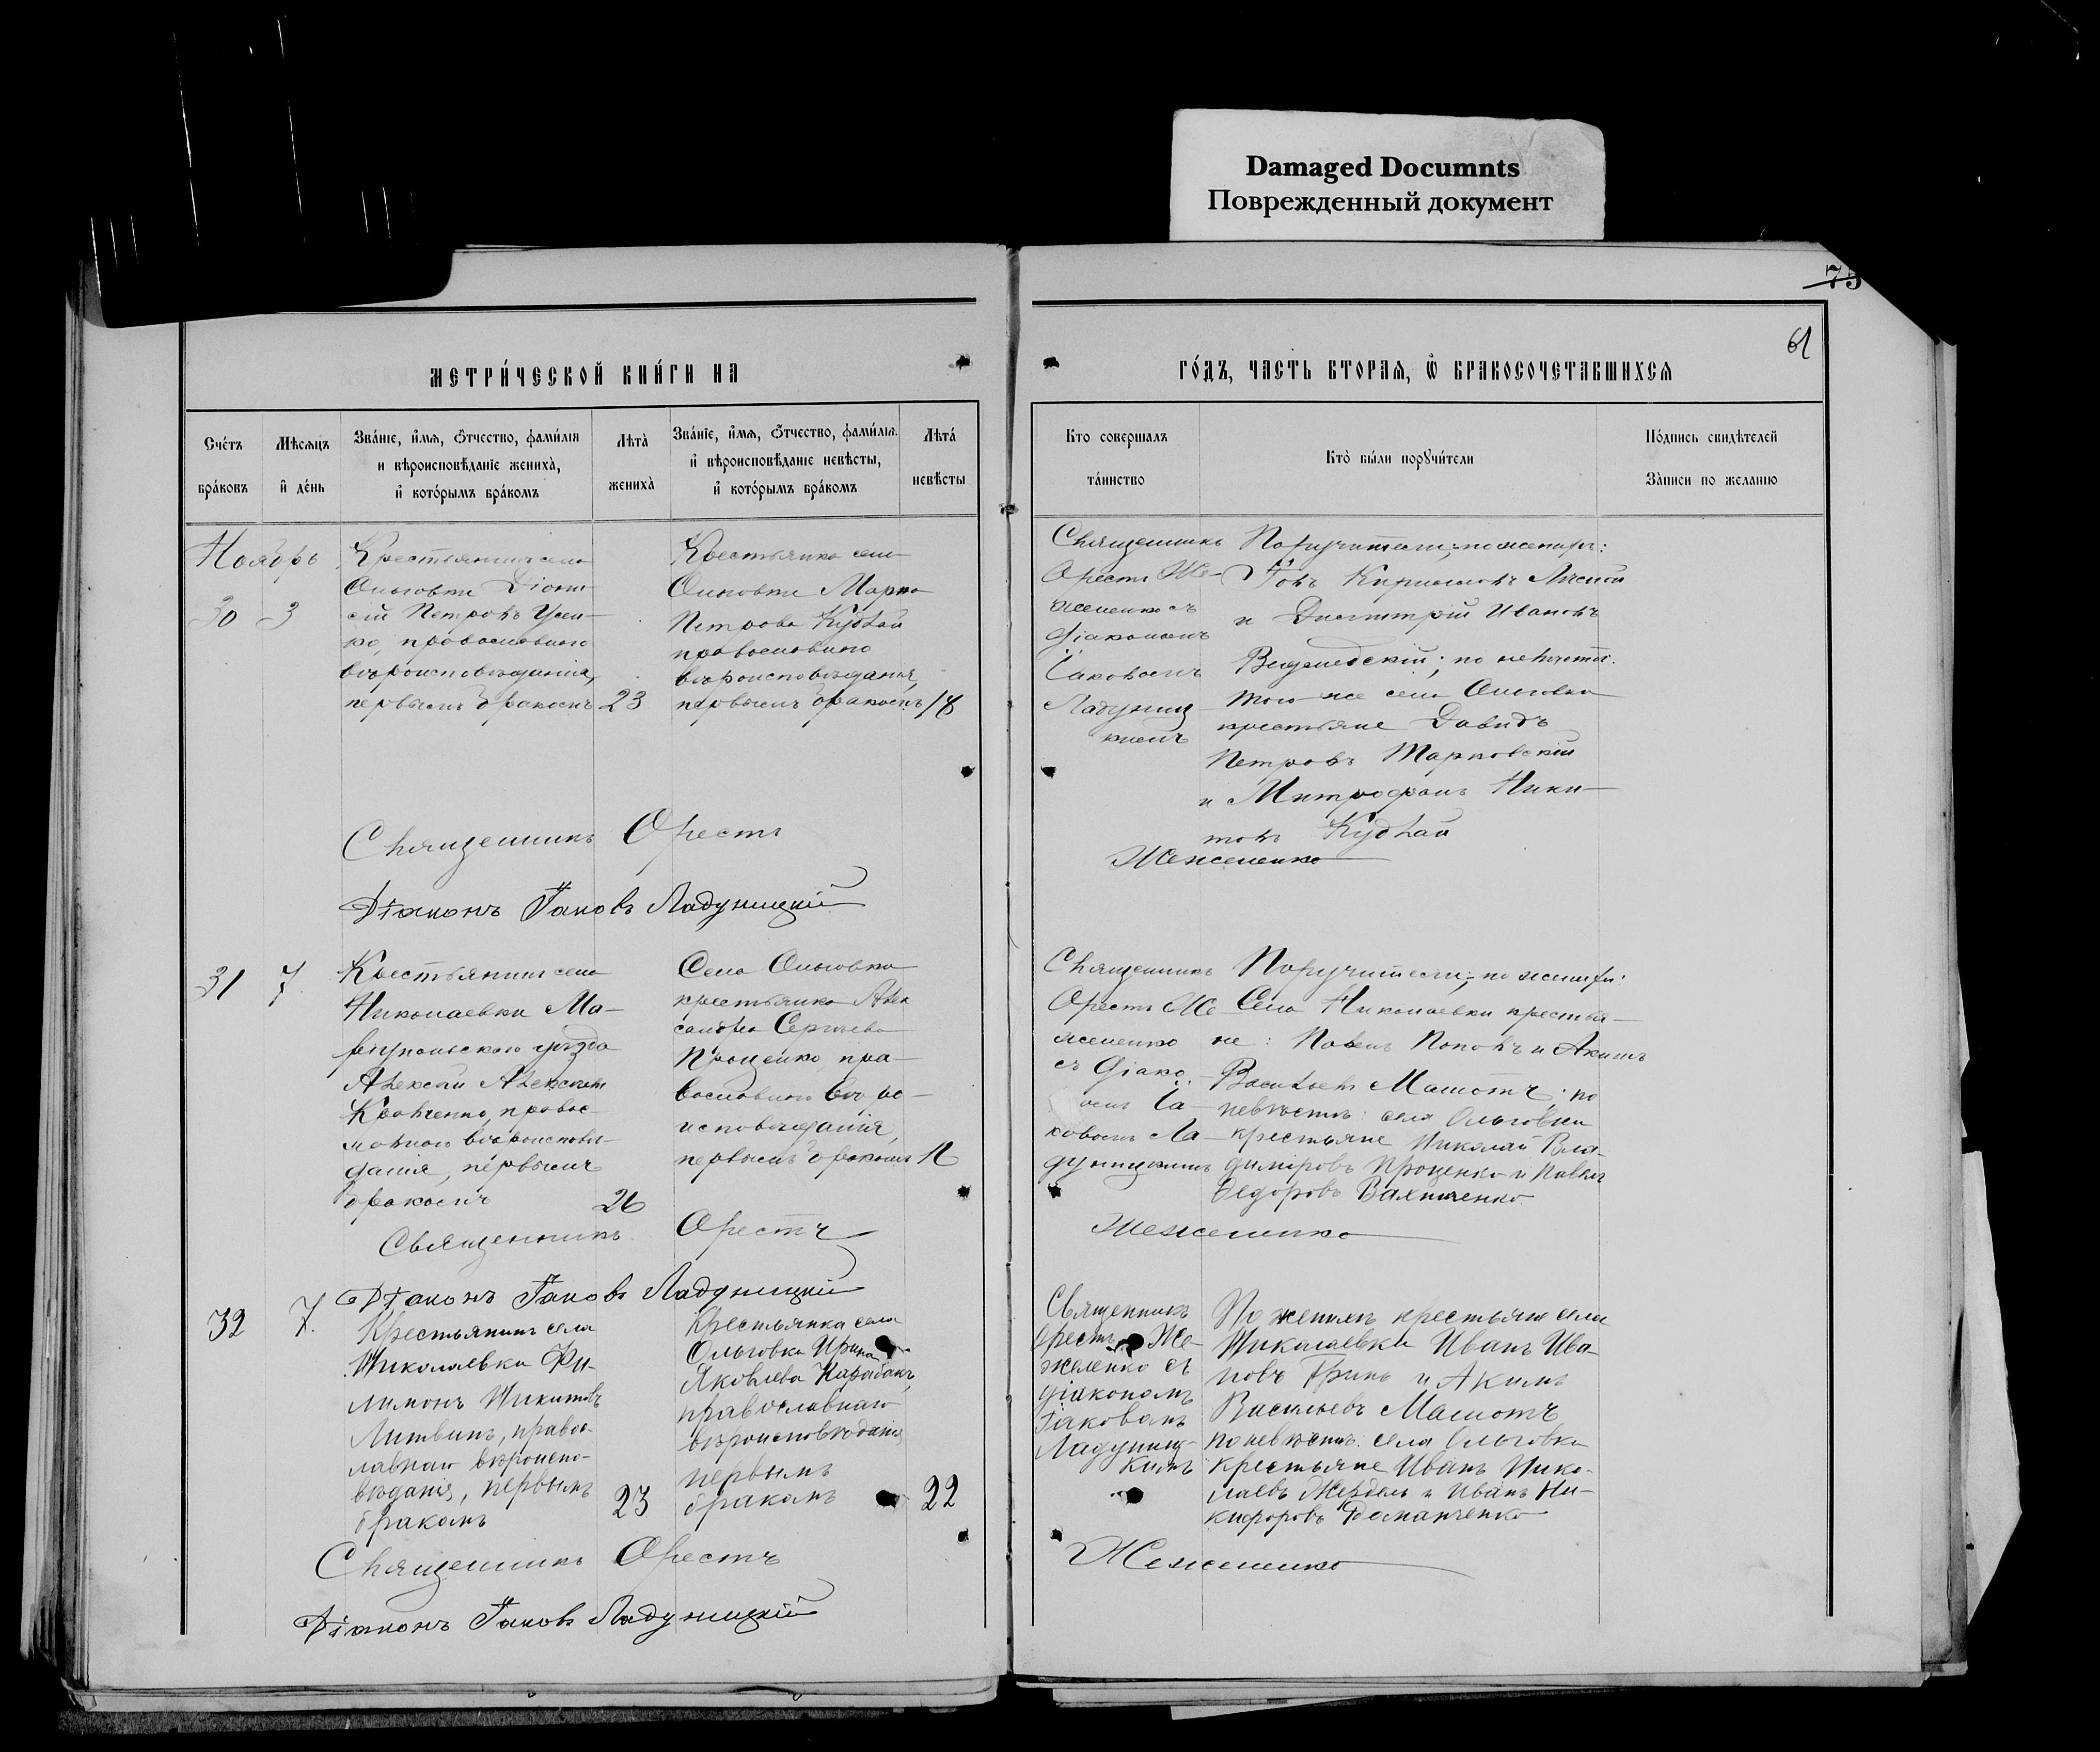 Damaged Documnts
Поврежденный документ
75
61
МЕТРИ́ЧЕСКОЙ КНИ́ГИ НА
ГО́ДЪ, ЧАСТЬ ВТОРАѦ, Ѡ БРАКОСОЧЕТАВШИХСѦ
Счéтъ
брáковъ
Мѣсѧцъ
и҆ дéнь
Звáнїе, и҆́мѧ, ѻ҆́тчество, фамѝлїѧ
и вѣроисповѣ́данїе женихà,
и҆ кото́рымъ брáкомъ
Лѣтà
женихà
Звáнїе, и҆́мѧ, ѻ҆́тчество, фамѝлїѧ
и҆ вѣроисповѣ́данїе невѣ́сты,
и҆ кото́рымъ брáкомъ
Лѣтá
невѣ́сты
Кто совершалъ
тáинство
Ктò бы́ли порꙋчи́тели
По́дпись свидѣ́телей
Зàписи по желанїю
Ноябрь
30 3
Крестьянинъ села
Ольговки Діони-
сій Петровъ Усен-
ко, православного
вѣроисповѣданія,
первымъ бракомъ
23
Крестьянка села
Ольговки Марѳа
Петрова Кудлай
православного
вѣроисповѣданія,
первымъ бракомъ
18
Священникъ
Орестъ Же-
желенко съ
діакономъ
Іаковомъ
Ладуниц-
кимъ
Поручители; по женихѣ:
Кирилловъ
и Дмитрій Ивановъ
по невѣстѣ:
того же села Ольговки
крестьяне Давидъ
Петровъ Тарновскій
и Митрофанъ Ники-
товъ Кудлай
Священникъ Орестъ Жежеленко
Діаконъ Іаковъ Ладуницкій
31 7
Крестьянинъ села
Николаевки Ма-
ріупольскаго уѣзда
Алексѣй Алексѣев
Кравченко, правос-
лавного вѣроисповѣ-
данія, первымъ
бракомъ
26
Села Ольговки
крестьянка Алек
сандра Сергѣева
Проценко, пра-
вославного вѣро-
исповѣданія,
первымъ бракомъ
Священникъ
Орестъ Же
желенко
съ Діако-
номъ Іа-
ковомъ Ла-
дуницкимъ
Поручители; по женихѣ:
Села Николаевки крестья-
не: Павелъ Поповъ и Акимъ
Васильевъ Маштотъ; по
невѣстѣ: села Ольговки
крестьяне Николай Вла-
диміровъ Проценко и Павелъ
Ѳедоровъ
Священникъ Орестъ Жежеленко
Діаконъ Іаковъ Ладуницкій
32 7.
Крестьянинъ села
Николаевки Фи-
лимонъ Никитовъ
Литвинъ, правос-
лавнаго вѣроиспо-
вѣданія, первымъ
бракомъ
23
Крестьянка села
Ольговки Ирина
Яковлева
православнаго
вѣроисповѣданія
первымъ
бракомъ
22
Священникъ
Орестъ Же-
желенко съ
діакономъ
Іаковомъ
Ладуниц-
кимъ
По женихѣ крестьяне села
Николаевки Иванъ Ива-
новъ Гринь и Акимъ
Васильевъ Маштотъ
по невѣстѣ: села Ольговки
крестьяне Иванъ Нико-
лаевъ и Иванъ Ни-
кифоровъ
Священникъ Орестъ Жежеленко
Діаконъ Іаковъ Ладуницкій